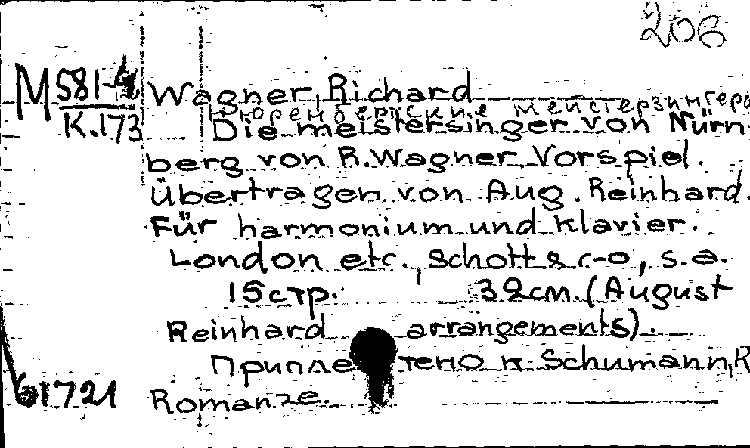 206
M 581-4
K.173
Wagner, Richard
Нюренбергские мейстерзингеры
Die meistersinger von Nürn
berg von R. Wagner. Vorspiel.
Übertragen von Aug. Reinhard.
Für harmonium und klavier.
London etc., Schott & c-o, s.a.
15 стр. 32 cm. (August
Reinhard arrangements).
Припле тено к Schumann, R
Romanze.
61721